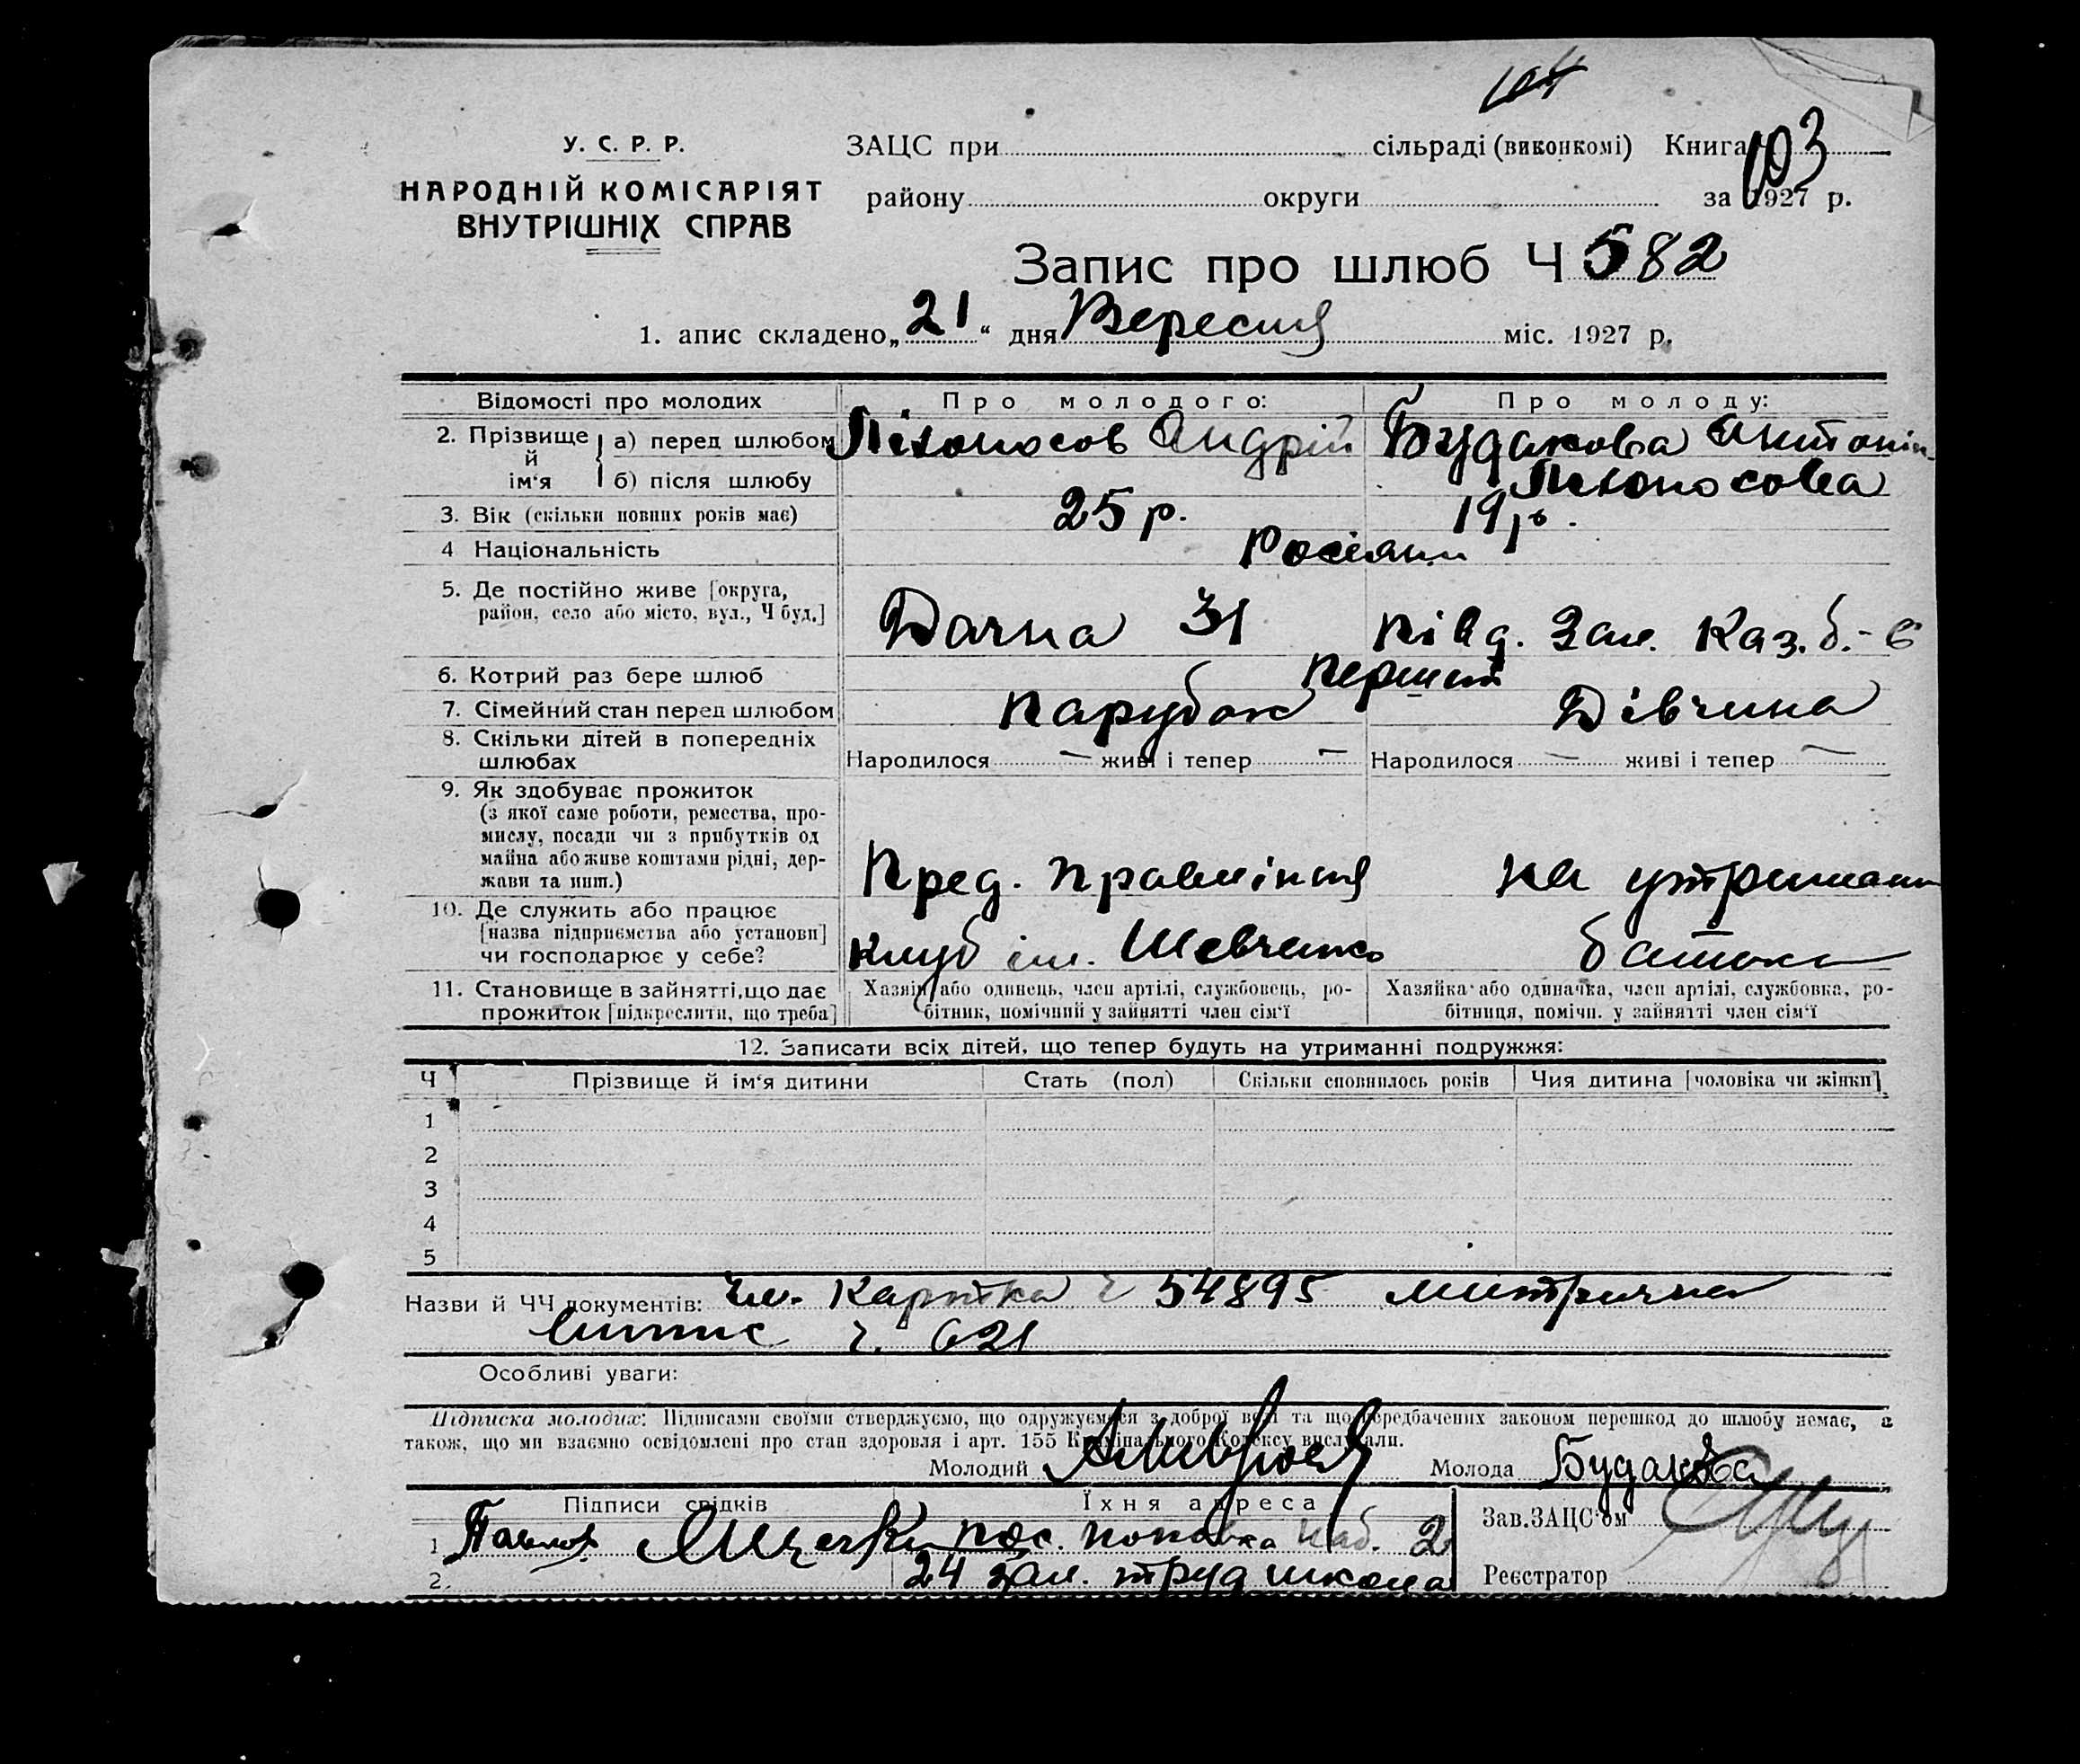 104
У. С. Р. Р.
НАРОДНІЙ КОМІСАРІЯТ
ВНУТРІШНІХ СПРАВ
ЗАЦС при сільраді (виконкомі) Книга Ч 103
району округи за 1927 р.
Запис про шлюб Ч 582
1. апис складено „21“ дня Вересня міс. 1927 р.
Відомості про молодих Про молодого: Про молоду:
2. Прізвище й ім‘я а) перед шлюбом Ліхоносов Андрій Будакова Антонін
б) після шлюбу Ліхоносова
3. Вік (скільки повних років має) 25 р. 19 р.
4 Національність Росіяни
5. Де постійно живе [округа,
район, село або місто, вул., Ч буд.] Дачна 31 Півд. Зал. Каз. б.- 6
6. Котрий раз бере шлюб Перший
7. Сімейний стан перед шлюбом Парубок Дівчина
8. Скільки дітей в попередніх
шлюбах Народилося — живі і тепер — Народилося — живі і тепер —
9. Як здобуває прожиток
(з якої саме роботи, ремества, про-
мислу, посади чи з прибутків од
майна або живе коштами рідні, дер-
жави та инш.) Пред. правління на утриманні
10. Де служить або працює
[назва підприємства або установи]
чи господарює у себе? клуб ім. Шевченко батька
11. Становище в зайнятті, що дає
прожиток [підкреслити, що треба]
Хазяїн або одинець, член артілі, службовець, ро-
бітник, помічний у зайнятті член сім‘ї
Хазяйка або одиначка, член артілі, службовка, ро-
бітниця, помічн. у зайнятті член сім‘ї
12. Записати всіх дітей, що тепер будуть на утриманні подружжя:
Ч Прізвище й ім‘я дитини Стать (пол) Скільки сповнилось років Чия дитина [чоловіка чи жінки]
1
2
3
4
5
Назви й ЧЧ документів: чл. Картка ч 54895 митрична
випис ч. 621
Особливі уваги:
Підписка молодих: Підписами своїми стверджуємо, що одружуємося з доброї волі та що передбачених законом перешкод до шлюбу немає, а
також, що ми взаємно освідомлені про стан здоровля і арт. 155 Кримінального Кодексу вислухали.
Молодий Молода Будакова
Підписи свідків Їхня адреса Зав. ЗАЦС‘ом
1 пос. Поповка 2
2. 24 зал. труд школа Реєстратор